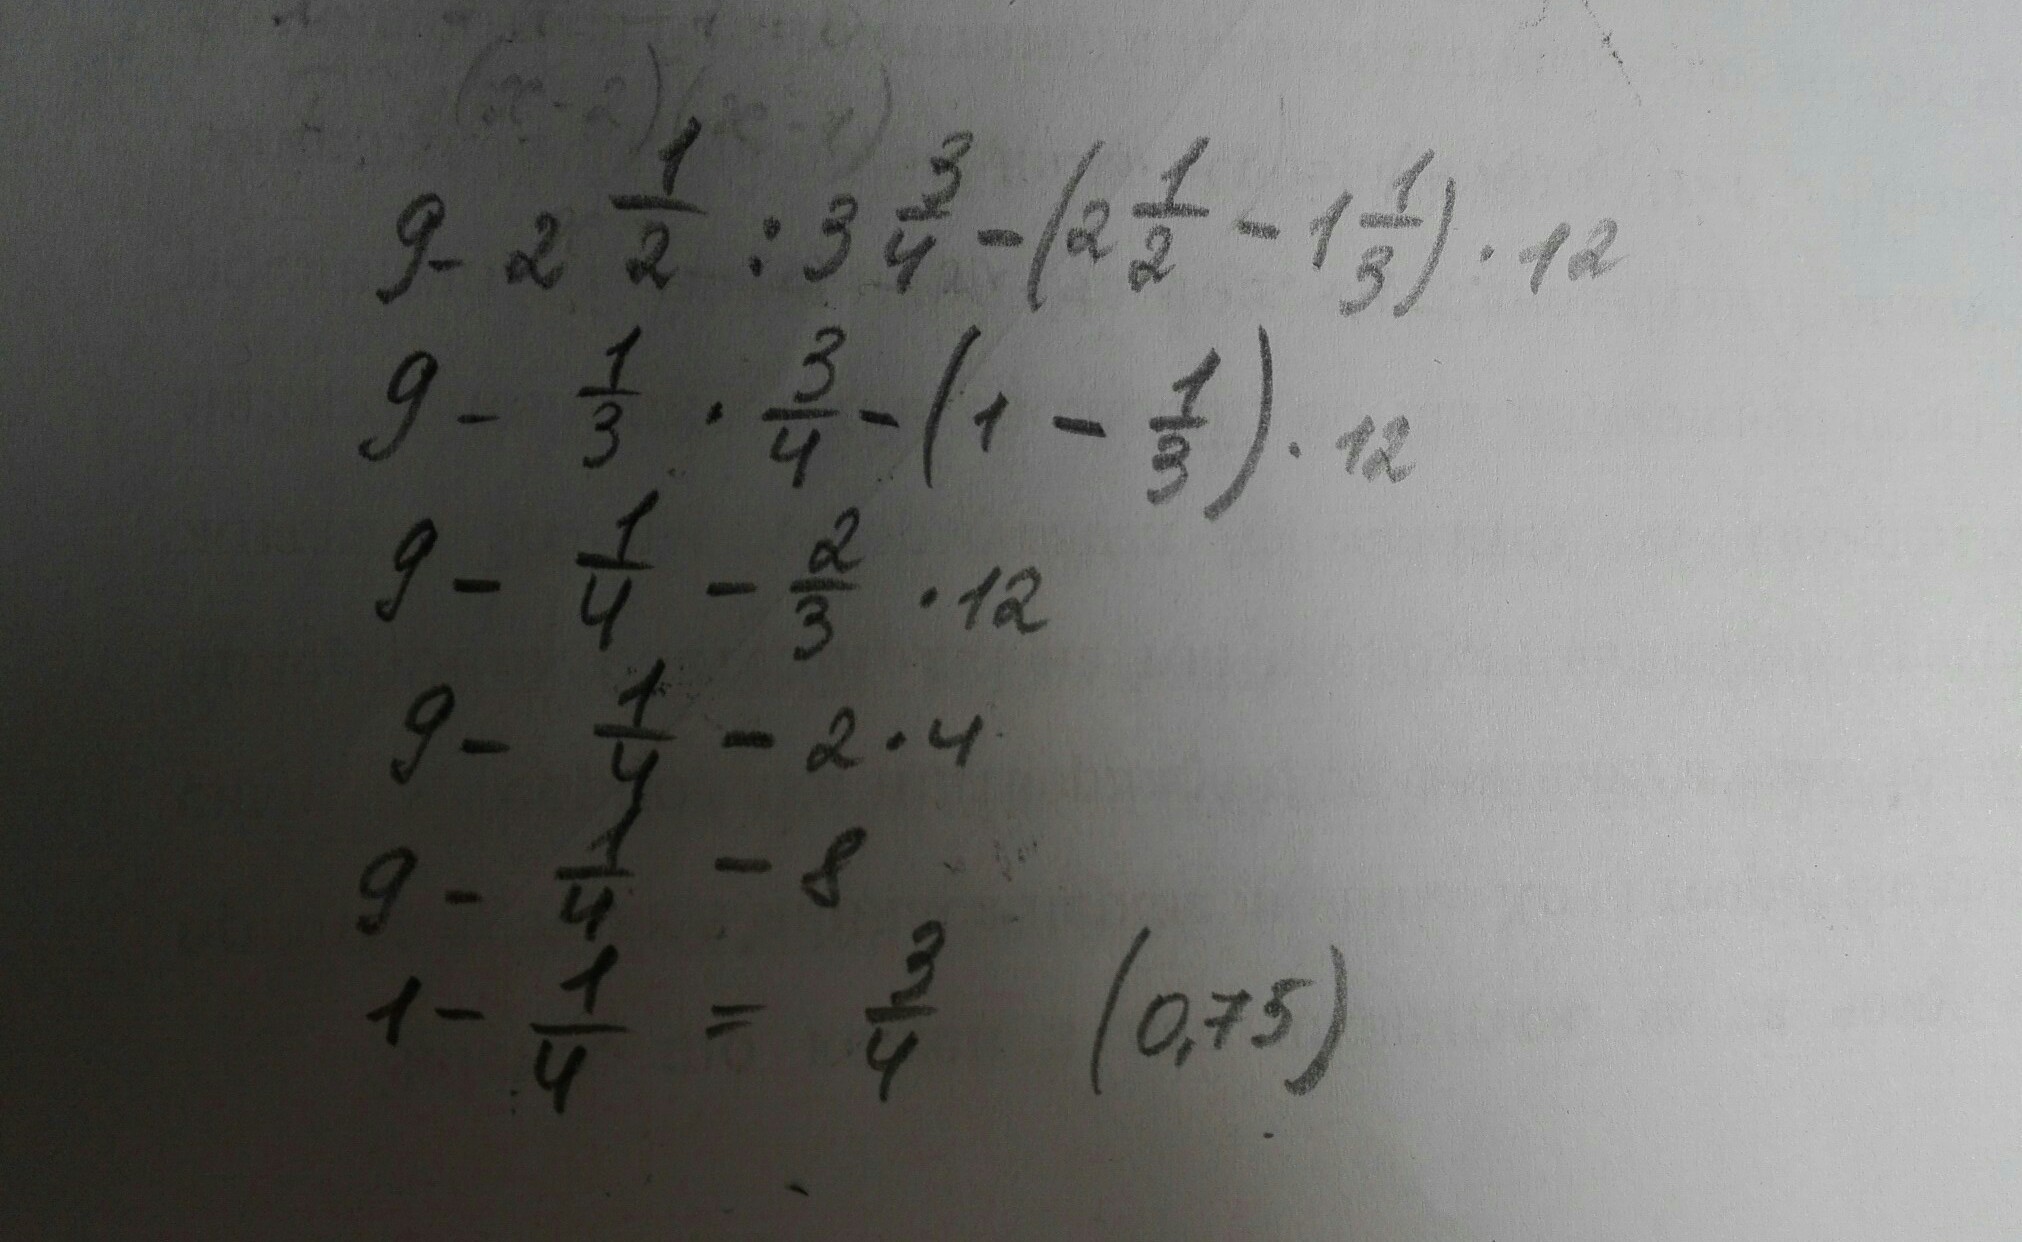 (x-2)(x-1)
9 - 2 1/2 : 3 3/4 - (2 1/2 - 1 1/3) · 12
9 - 1/3 · 3/4 - (1 - 1/3) · 12
9 - 1/4 - 2/3 · 12
9 - 1/4 - 2 · 4
9 - 1/4 - 8
1 - 1/4 = 3/4 (0,75)